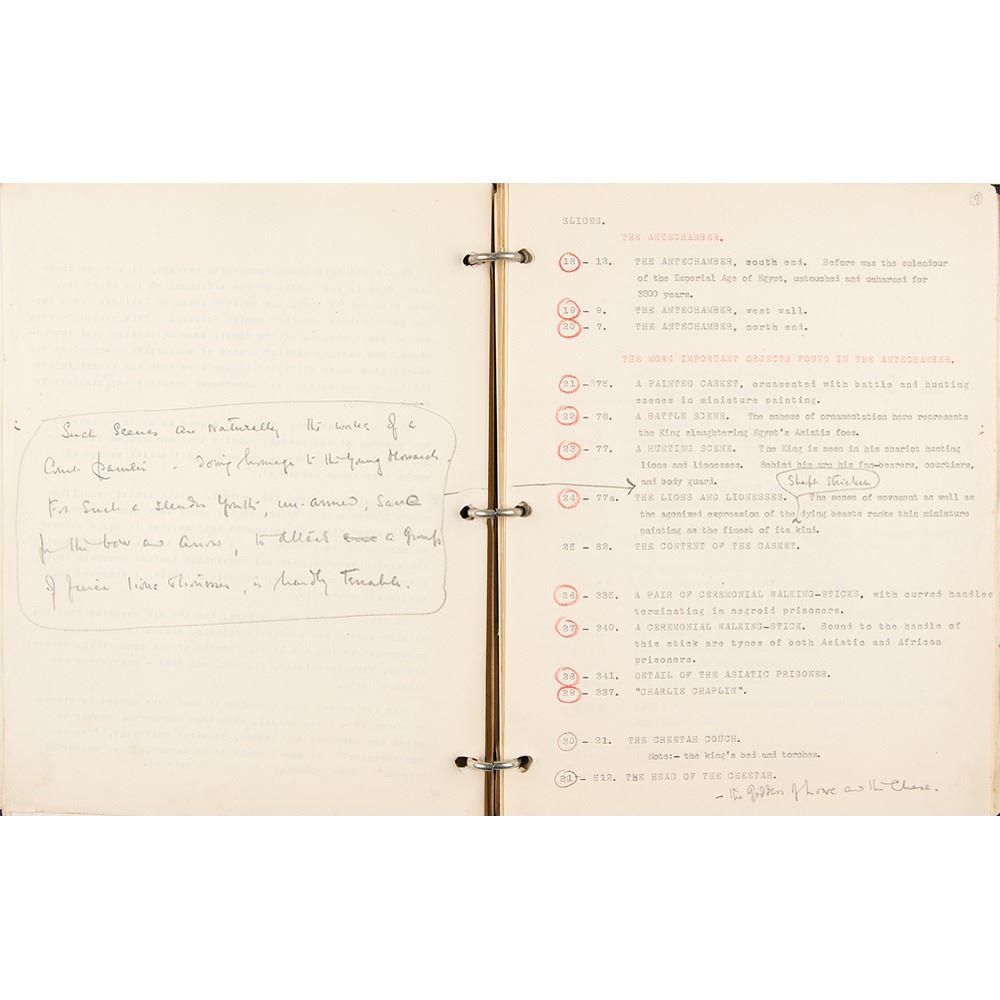 Such Scenes are Naturally the works of a
Court Painter - doing homage to the Young Monarch.
For Such a slender Youth, un-armed, save
for the bow and arrow, to attack a group
of fierce lions & lionesses, is hardly Tenable.
9
SLIDES.
THE ANTECHAMBER.
18 - 12. THE ANTECHAMBER, south end. Before was the splendour
of the Imperial Age of Egypt, untouched and unharmed for
3300 years.
19 - 9. THE ANTECHAMBER, west wall.
20 - 7. THE ANTECHAMBER, north end.
THE MORE IMPORTANT OBJECTS FOUND IN THE ANTECHAMBER.
21 - 275. A PAINTED CASKET, ornamented with battle and hunting
scenes in miniature painting.
22 - 78. A BATTLE SCENE. The scheme of ornamentation here represents
the King slaughtering Egypt's Asiatic foes.
23 - 77. A HUNTING SCENE. The King is seen in his chariot hunting
lions and lionesses. Behind him are his fan-bearers, courtiers,
and body guard.
Shaft Stricken
24 - 77a. THE LIONS AND LIONESSES. The sense of movement as well as
the agonised expression of the dying beasts ranks this miniature
painting as the finest of its kind.
25 - 82. THE CONTENT OF THE CASKET.
26 - 335. A PAIR OF CEREMONIAL WALKING-STICKS, with curved handles
terminating in negroid prisoners.
27 - 340. A CEREMONIAL WALKING-STICK. Bound to the handle of
this stick are types of both Asiatic and African
prisoners.
28 - 341. DETAIL OF THE ASIATIC PRISONER.
29 - 337. "CHARLIE CHAPLIN".
30 - 21. THE CHEETAH COUCH.
Note:- the king's bed and torches.
31 - 512. THE HEAD OF THE CHEETAH.
- the Goddess of Love and the Chase.